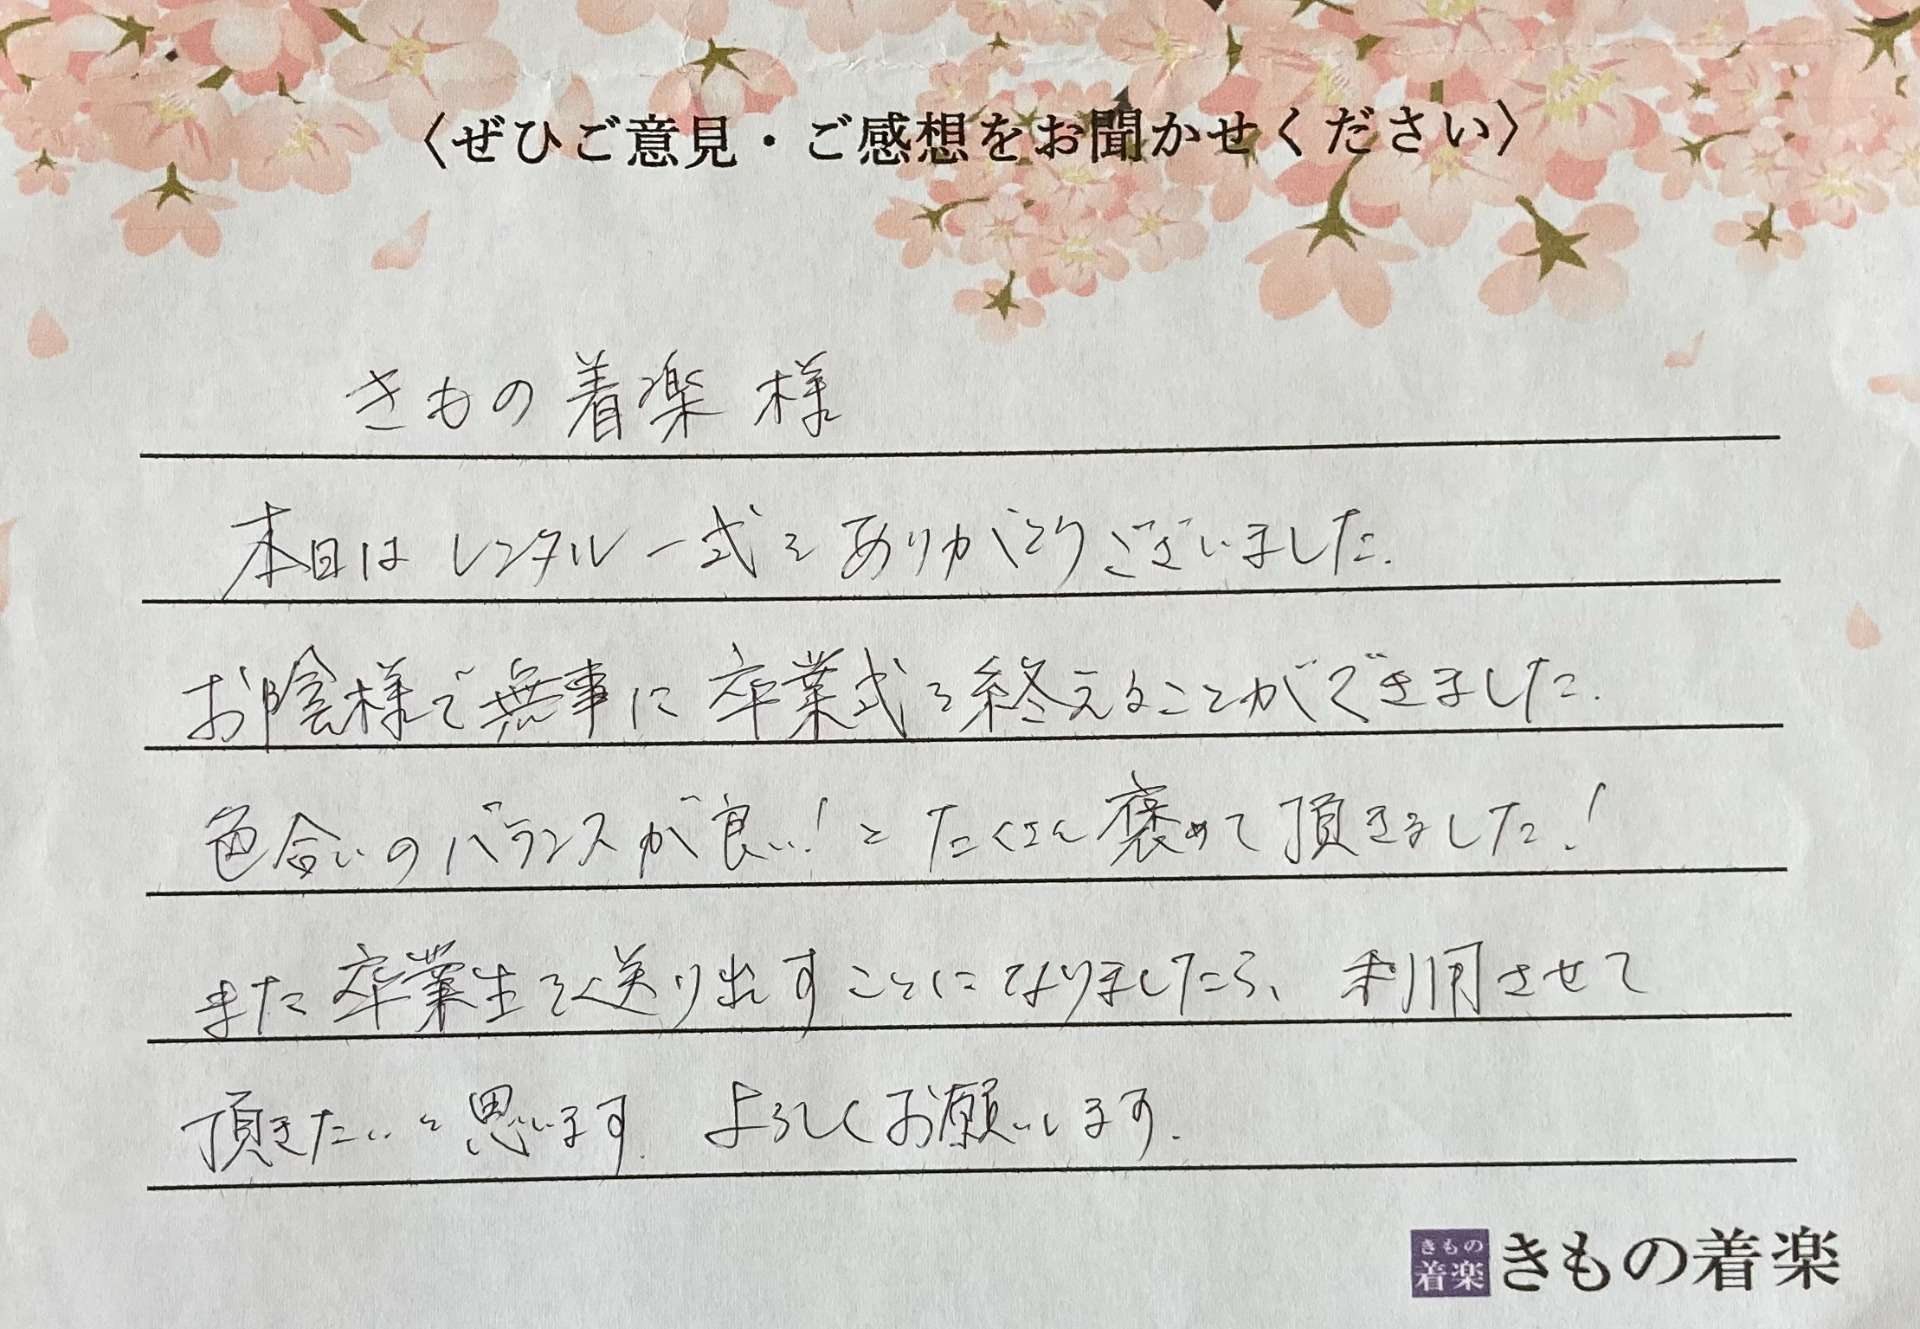 〈ぜひご意見・ご感想をお聞かせください〉
きもの着楽 様
本日はレンタル一式をありがとうございました.
お陰様で無事に卒業式を終えることができました.
色合いのバランスが良い!とたくさん褒めて頂きました!
また卒業生を送り出すことになりましたら、利用させて
頂きたいと思います. よろしくお願いします.
きもの
着楽
きもの着楽